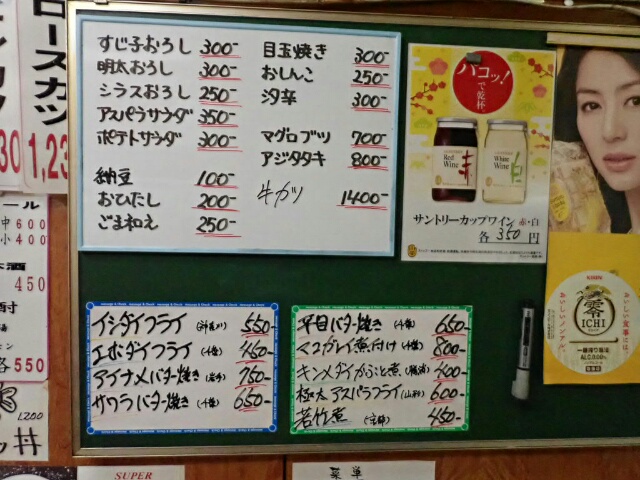 ロースカツ
30
1,23
中 600
小 400
450
各 550
1,200
丼
すじ子おろし 300-
明太おろし 300-
シラスおろし 250-
アスパラサラダ 350-
ポテトサラダ 300-
納豆 100-
おひたし 200-
ごま和え 250-
目玉焼き 300-
おしんこ 250-
汐辛 300-
マグロブツ 700-
アジタタキ 800-
牛カツ 1400-
パコッ!
で乾杯
Red Wine 赤
White Wine 白
サントリーカップワイン 赤・白
各 350 円
イシダイフライ 550-
エボダイフライ (千葉) 450-
アイナメバター焼き (岩手) 750-
サワラバター焼き (千葉) 650-
平目バター焼き (千葉) 650-
マコガレイ煮付け (千葉) 800-
キンメダイかぶと煮 400-
極太アスパラフライ (山形) 600-
若竹煮 (京都) 450-
おいしい食事には、
おいしいノンアル。
KIRIN
零
ICHI
一番搾り製法
ALC.0.00%
SUPER
菜単